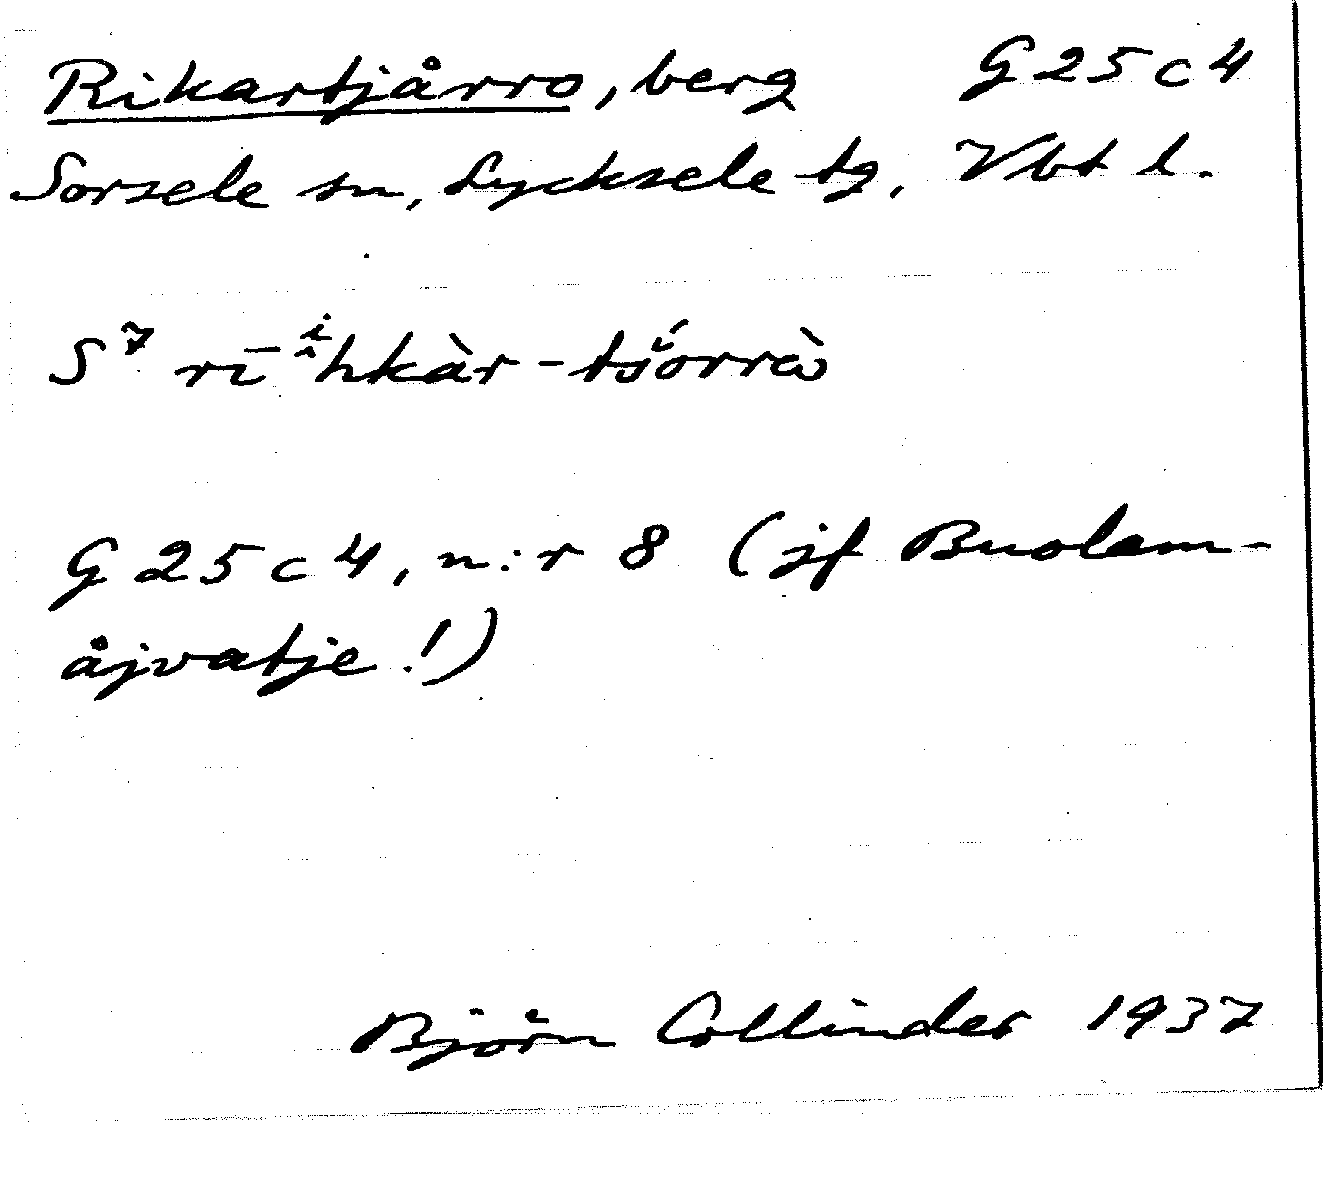 Rikartjårro, berg G 25 c 4
Sorsele sn, Lycksele tg, Vbt l.
S⁷ rī ⁱhkàr-tśórrà
G 25 c 4, n:r 8 (jf Buolam-
åjvatje!)
Björn Collinder 1937